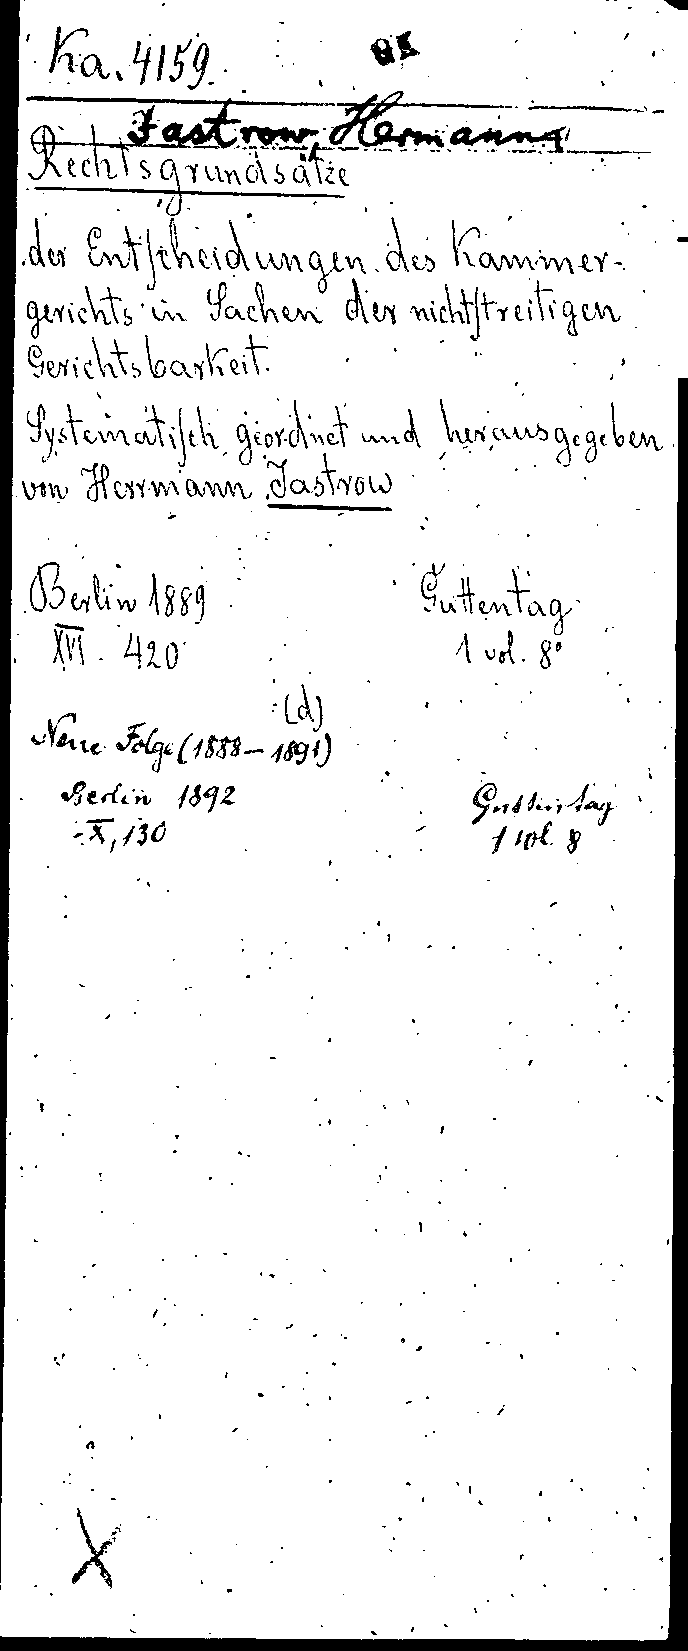 Ka. 4159
Jastrow, Hermann
Rechtsgrundsätze
der Entscheidungen des Kammer-
gerichts in Sachen der nichtstreitigen
Gerichtsbarkeit.
Systematisch geordnet und herausgegeben
von Herrmann Jastrow
Berlin 1889 Guttentag
XVI. 420 1 vol. 8°
(d)
Neue Folge (1888–1891)
Berlin 1892 Guttentag
X, 130 1 vol. 8
X